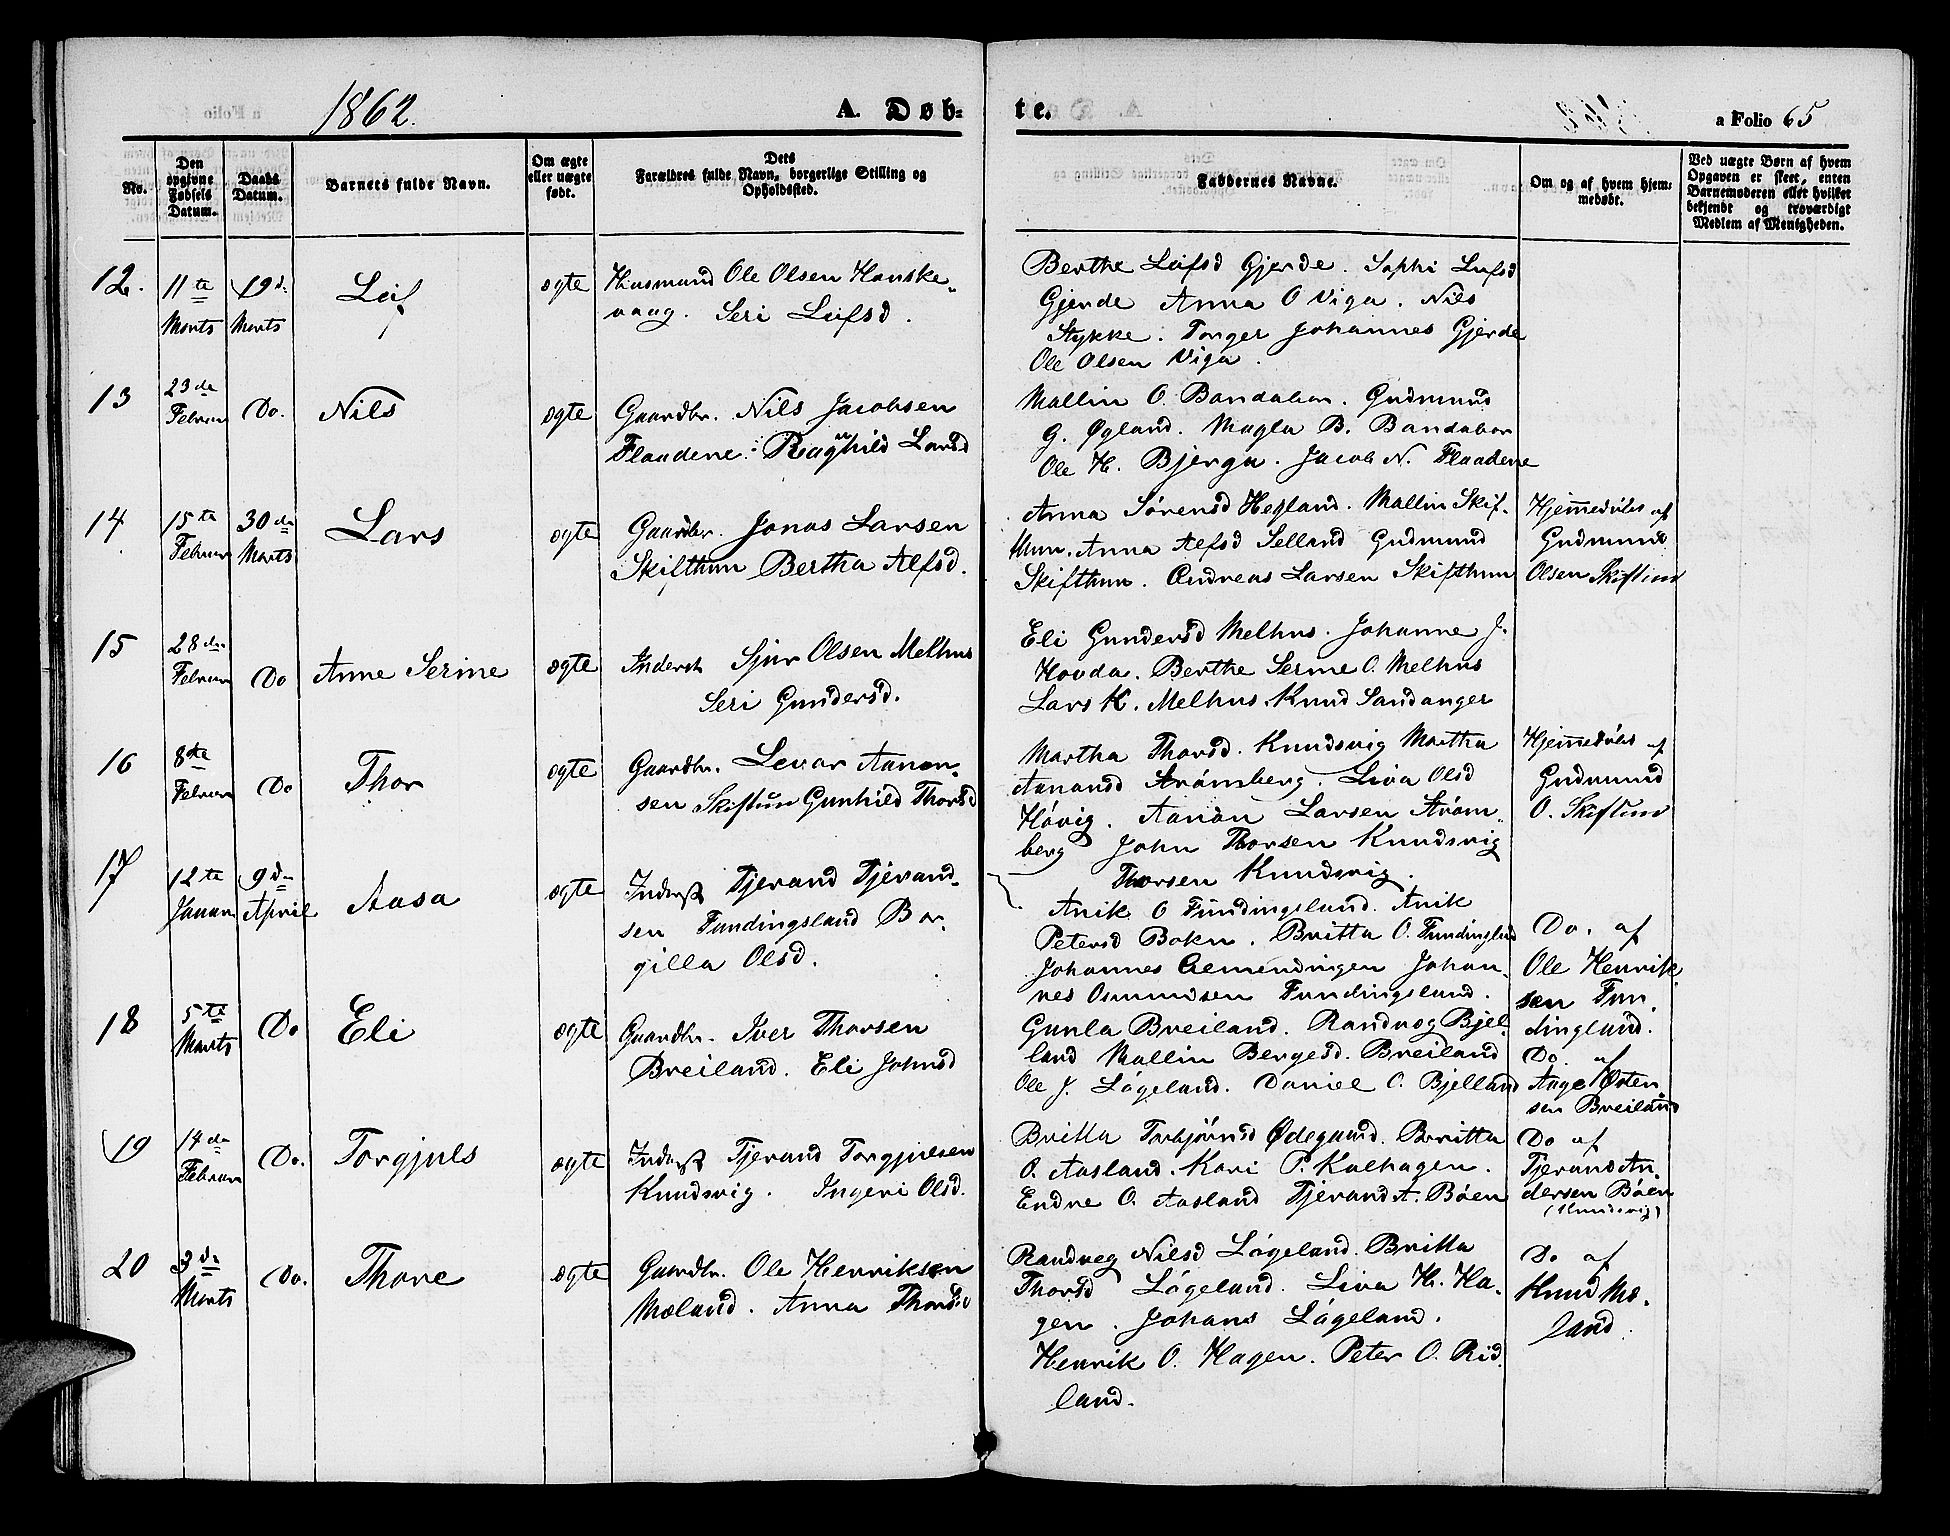 1862.
A. Døb-
te.
a Folio 65
No.
Den opgivne Fødsels Datum.
Daabs Datum.
Barnets fulde Navn.
Om ægte eller uægte født.
Dets Forældres fulde Navn, borgerlige Stilling og Opholdssted.
Faddernes Navne.
Om og af hvem hjemmedøbt.
Ved uægte Børn af hvem Opgaven er skeet, enten Barnemoderen eller hvilket bekjendt og troværdigt Medlem af Menigheden.
12. 11te Marts 19d. Marts Leif ægte
Husmand Ole Olsen Hanske-
vaag. Seri Leifsd.
Berthe Leifsd Gjerde. Sophi Leifsd
Gjerde Anna O Viga. Nils
Stykke. Torger Johannes Gjerde
Ole Olsen Viga.
13 23de Februar Do. Nils ægte
Gaardbr. Nils Jacobsen
Flaadene. Ragnhild Larsd
Mallin O. Bandaber. Gudmund
G. Øgland. Magla B. Bandaber
Ole H. Bjerga. Jacob N. Flaadene
14 15te Februar 30de Marts Lars ægte
Gaardbr. Jonas Larsen
Skifthun Bertha Alfsd.
Anna Sørensd Hegland. Mallin Skif-
thun. Anna Alfsd Selland Gudmund
Skifthun. Andreas Larsen Skifthun
Hjemmedøbt af
Gudmund
Olsen Skiftun
15 28de Februar Do Anne Serine ægte
Inderst Sjur Olsen Melhus
Seri Gundersd.
Eli Gundersd Melhus. Johanne J.
Hovda. Berthe Serine O. Melhus
Lars K. Melhus. Knud Sandanger
16 8de Februar Do Thor ægte
Gaardbr. Levar Aanon-
sen Skiftun Gunhild Thorsd
Martha Thorsd. Knudsvig Martha
Aanansd Strømberg. Liva Olsd
Høvig. Aanon Larsen Strøm-
berg John Thorsen Knudsvig
Thorsen Knudsvig.
Hjemmedøbt af
Gudmund
O. Skiftun
17 12te Januar 9de April Aasa ægte
Inderst Tjerand Tjerand-
sen Fundingsland Bor-
gilla Olsd.
Anik O Fundingsland. Anik
Petersd Bokn. Britta O. Fundingsland
Johannes Johan-
nes Osmundsen Fundingsland.
Do. af
Ole Henrik
sen Fun-
dingland.
18 5te Marts Do Eli ægte
Gaardbr. Iver Thorsen
Breiland. Eli Johnsd
Gunla Breiland. Randvog Bjel-
land Mallin Bergesd. Breiland
Ole J. Løgeland. Daniel O. Bjelland
Do. af
Aage Østen
sen Breiland
19 14de Februar Do. Torgjuls ægte
Inderst Tjerand Torgjulsen
Knudsvig. Ingeri Olsd.
Britta Torbjørnsd Ødegaard. Britta
O. Aasland. Kari P. Kalhagen.
Endre O. Aasland Tjerand A. Bøen
Do af
Tjerand An-
dersen Bøen
(Knudsvig)
20 3de Marts Do. Thore ægte
Gaardbr. Ole Henriksen
Mæland. Anna Thorsd
Randveg Nilsd Løgeland. Britta
Thorsd Løgeland. Liva H. Ha-
gen. Johans Løgeland.
Henrik O. Hagen. Peter O. Rid
land.
Do af
Knud Mæ-
land.